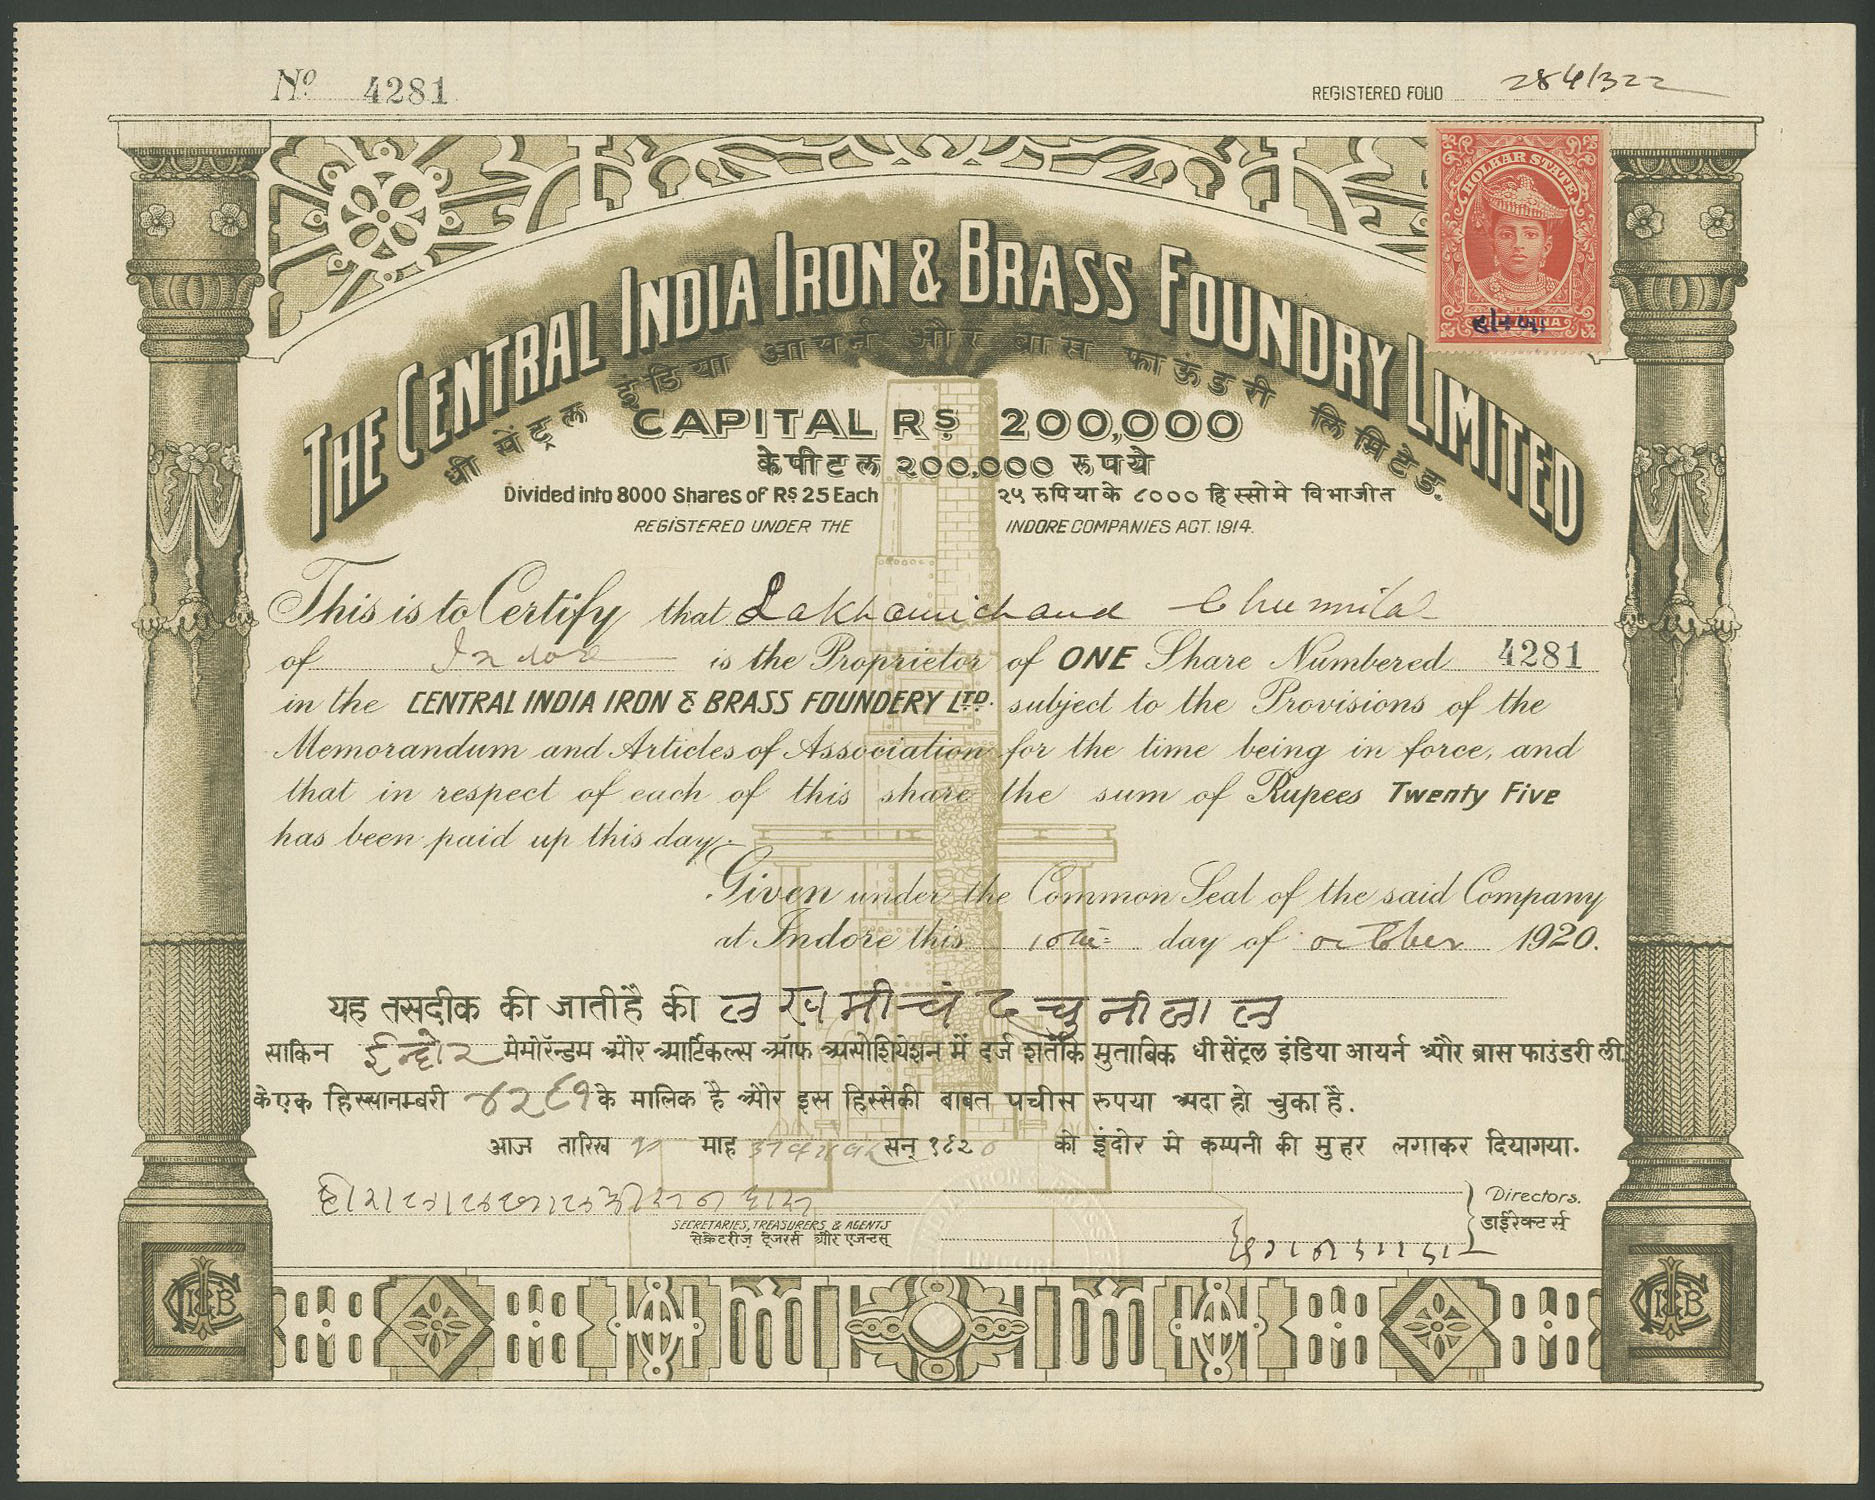 No. 4281
REGISTERED FOLIO 284/322
HOLKAR STATE
THE CENTRAL INDIA IRON & BRASS FOUNDRY LIMITED
धी सेंट्रल इंडिया आयर्न और ब्रास फाऊंडरी लिमिटेड.
CAPITAL RS 200,000
केपीटल २००,००० रुपये
Divided into 8000 Shares of RS 25 Each २५ रुपियाके ८००० हिस्सोमे विभाजीत
REGISTERED UNDER THE INDORE COMPANIES ACT. 1914.
This is to Certify that Lakhamichand Chunnilal
of Indore is the Proprietor of ONE Share Numbered 4281
in the CENTRAL INDIA IRON & BRASS FOUNDERY LTD. subject to the Provisions of the
Memorandum and Articles of Association for the time being in force, and
that in respect of each of this share the sum of Rupees Twenty Five
has been paid up this day.
Given under the Common Seal of the said Company
at Indore this 10th day of October 1920.
यह तसदीक की जातीहै की लखमीचंद चुनीलाल
साकिन ईन्दोर मेमोरॅन्डम और आर्टिकल्स ऑफ असोशियेशन में दर्ज शर्तोंके मुताबिक धी सेंट्रल इंडिया आयर्न और ब्रास फाउंडरी ली.
के एक हिस्सानम्बरी ४२८१ के मालिक है और इस हिस्सेकी बाबत पचीस रुपया अदा हो चुका है.
आज तारिख माह सन् १९२० को इंदोर मे कम्पनी की मुहर लगाकर दियागया.
Directors.
डाईरेक्टर्स
SECRETARIES, TREASURERS, & AGENTS
सेक्रेटरीज़ ट्रेजरर्स और एजन्टस्